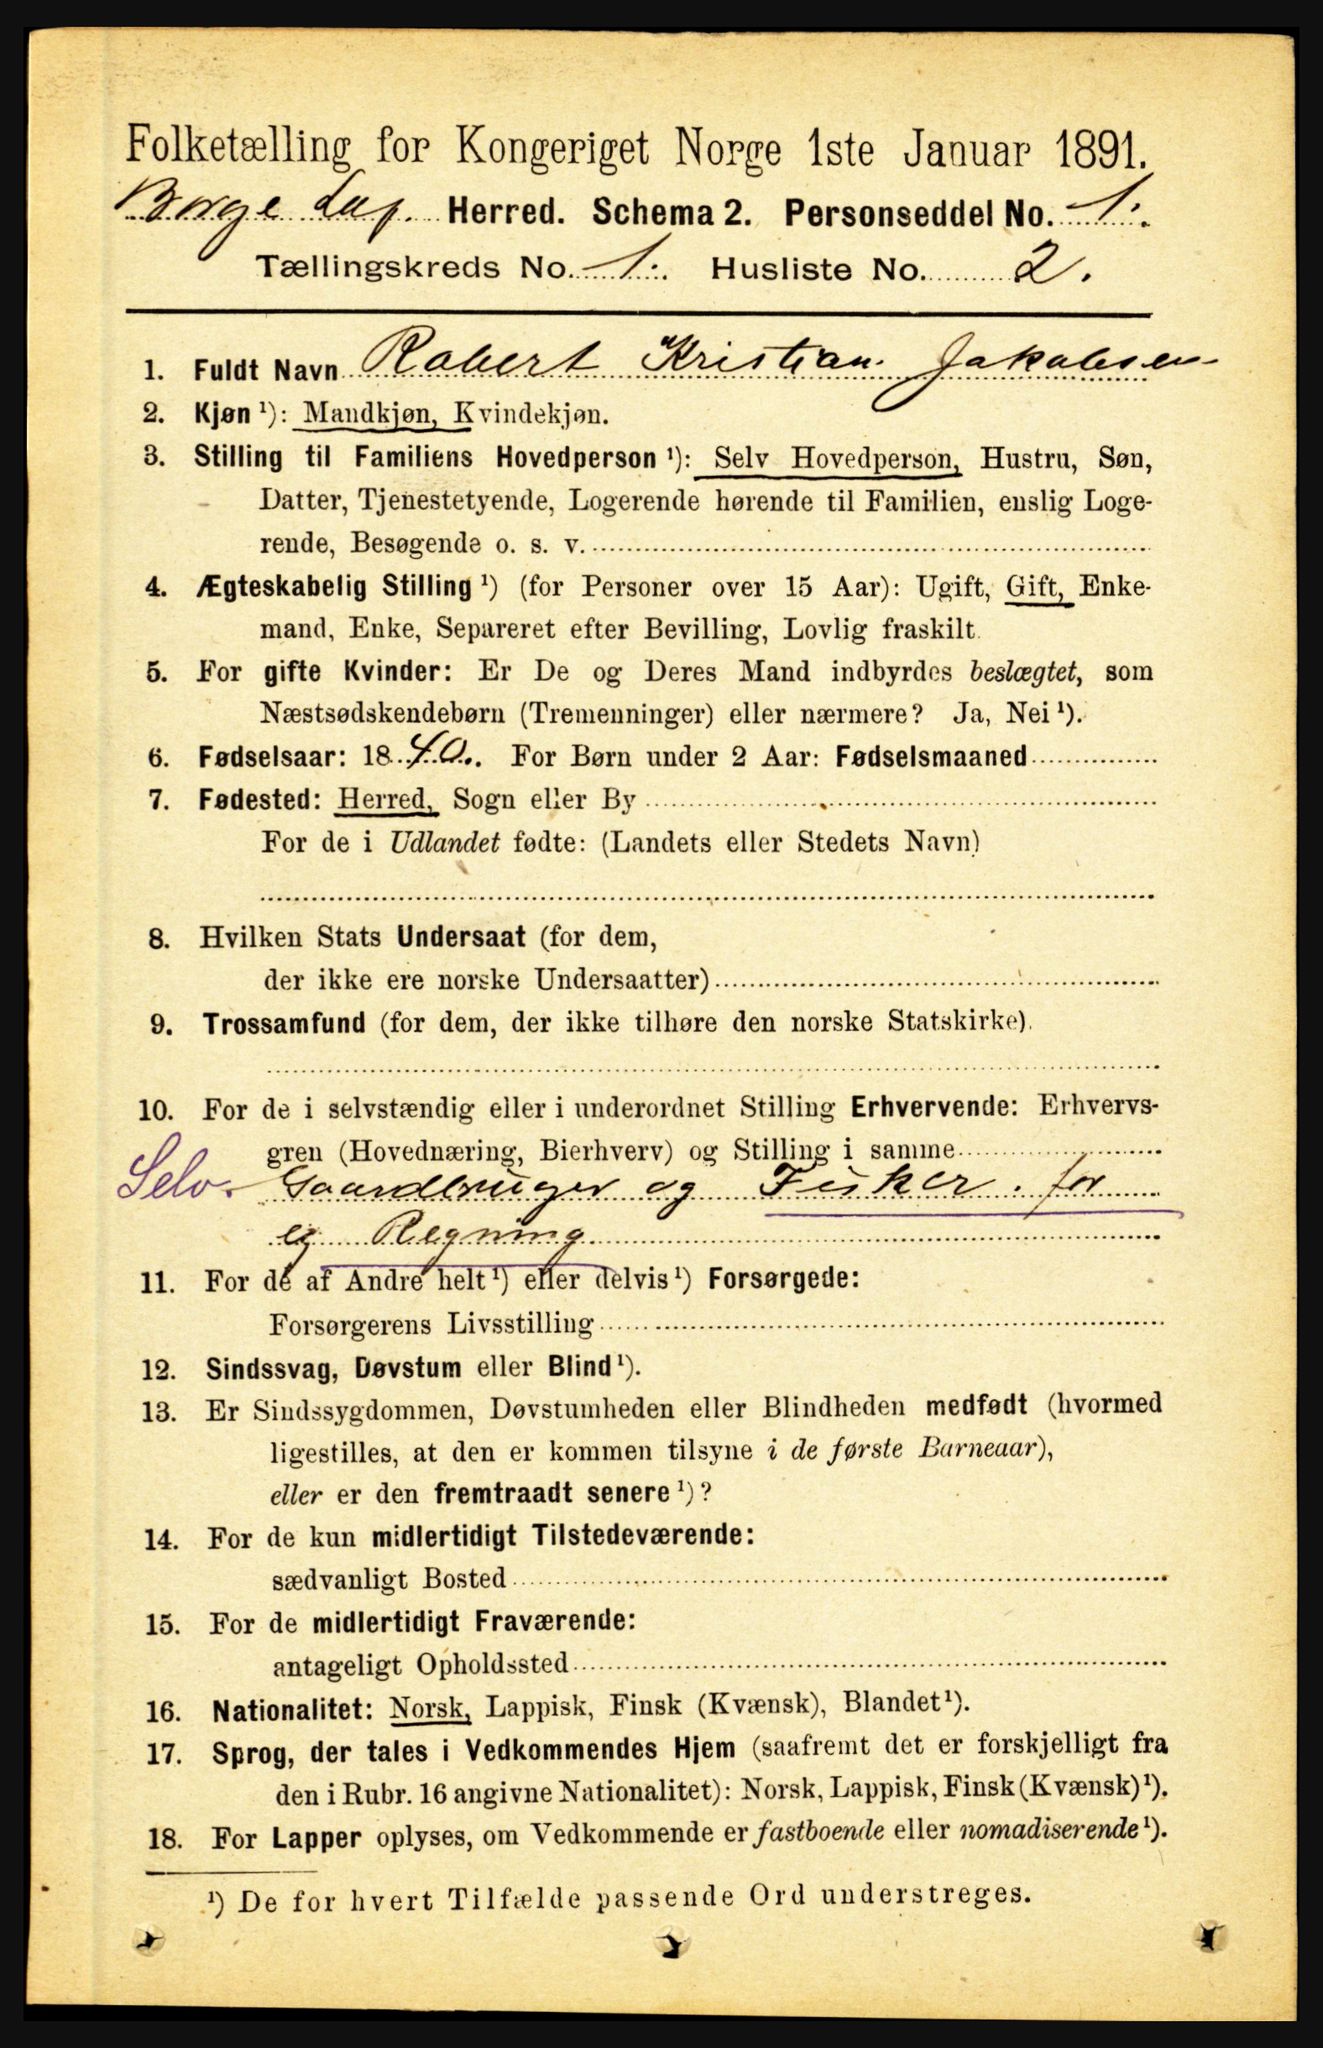 Folketælling for Kongeriget Norge 1ste Januar 1891.
Borge Herred. Schema 2. Personseddel No. 1.
Tællingskreds No. 1. Husliste No. 2.
1. Fuldt Navn Robert Kristian Jakobsen
2. Kjøn ¹): Mandkjøn, Kvindekjøn.
3. Stilling til Familiens Hovedperson ¹): Selv Hovedperson, Hustru, Søn,
Datter, Tjenestetyende, Logerende hørende til Familien, enslig Loge-
rende, Besøgende o. s. v.
4. Ægteskabelig Stilling ¹) (for Personer over 15 Aar): Ugift, Gift, Enke-
mand, Enke, Separeret efter Bevilling, Lovlig fraskilt.
5. For gifte Kvinder: Er De og Deres Mand indbyrdes beslægtet, som
Næstsødskendebørn (Tremenninger) eller nærmere? Ja, Nei ¹).
6. Fødselsaar: 1840. For Børn under 2 Aar: Fødselsmaaned
7. Fødested: Herred, Sogn eller By
For de i Udlandet fødte: (Landets eller Stedets Navn)
8. Hvilken Stats Undersaat (for dem,
der ikke ere norske Undersaatter)
9. Trossamfund (for dem, der ikke tilhøre den norske Statskirke).
10. For de i selvstændig eller i underordnet Stilling Erhvervende: Erhvervs-
gren (Hovednæring, Bierhverv) og Stilling i samme
Selv. Gaardbruger og Fisker. for
eg Regning
11. For de af Andre helt ¹) eller delvis ¹) Forsørgede:
Forsørgerens Livsstilling
12. Sindssvag, Døvstum eller Blind ¹).
13. Er Sindssygdommen, Døvstumheden eller Blindheden medfødt (hvormed
ligestilles, at den er kommen tilsyne i de første Barneaar),
eller er den fremtraadt senere ¹)?
14. For de kun midlertidigt Tilstedeværende:
sædvanligt Bosted
15. For de midlertidigt Fraværende:
antageligt Opholdssted
16. Nationalitet: Norsk, Lappisk, Finsk (Kvænsk), Blandet ¹).
17. Sprog, der tales i Vedkommendes Hjem (saafremt det er forskjelligt fra
den i Rubr. 16 angivne Nationalitet): Norsk, Lappisk, Finsk (Kvænsk) ¹).
18. For Lapper oplyses, om Vedkommende er fastboende eller nomadiserende ¹).
¹) De for hvert Tilfælde passende Ord understreges.